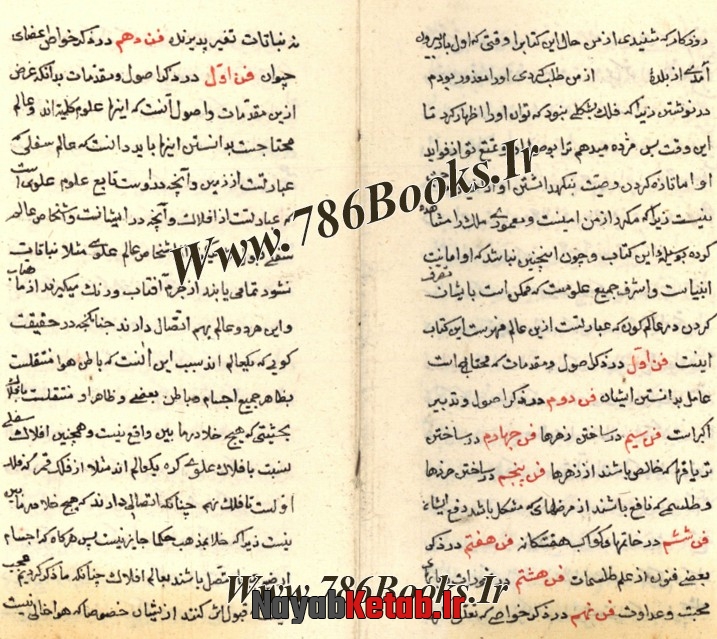 روزگار که شنیدی از من حال این کتاب را وقتی که اول بار بیرون
آمدی از بلدهٔ از من طلب کردی او را معذور بودم
در نوشتن زیرا که فلک بشکلی نبود که توان او را اظهار کرد تا
این وقت پس مژده میدهم ترا و تمتع تو از فواید
او اما تازه کردن وصیت بنگهداشتن او از
نیست زیرا که مکرر از من امینت و معمور ملک را مشاهده
کرده بوسیلهٔ این کتاب و چون اینچنین نباشد که او امانت
انبیاست و اشرف جمیع علومست که ممکن است بایشان تصرف
کردن در عالم کون که عبارتست ازین عالم فهرست این کتاب
اینست فن اول در ذکر اصول و مقدمات که محتاج است
عامل بدانستن ایشان فن دوم در ذکر اصول و تدبیر
اکبر است فن سیم در ساختن زهرها فن چهارم در ساختن
تریاقها که خالص باشند از زهرها فن پنجم در ساختن حرزها
و طلسمی که نافع باشند از مرضهای که مشکل باشد دفع ایشان
فن ششم در خاتمها و کواکب هفتگانه فن هفتم در ذکر
بعضی فنون از علم طلسمات فن هشتم در
محبت و عداوت فن نهم در ذکر خواص که تعلق
نه نباتات تغیر پذیرنده فن دهم در ذکر خواص اعضای
حیوان فن اول در ذکر اصول و مقدمات بدانکه غرض
ازین مقدمات و اصول آنست که اینها علوم کلیه‌اند و عالم
محتاجست بدانستن اینها باید دانست که عالم سفلی که
عبارتست از زمین و آنچه در اوست تابع علوم علویست
که عبارتست از افلاک و آنچه در ایشانست و اشخاص عالم
سفلی اشخاص عالم علوی مثلا نباتات
نشود تمامی یابند از جرم آفتاب و رنگ میگیرند از ماهتاب
و این هر دو عالم بهم اتصال دارند چنانکه در حقیقت
گویی که یک عالم‌اند سبب این آنست که باطن هوا متصلست
بظاهر جمیع اجسام و باطن بعضی و ظاهر او متصلست بافلاک
بحیثیتی که هیچ خلا در ما بین واقع نیست و همچنین افلاک سفلی
نسبت با فلاک علوی گوید یک عالم‌اند مثلا از فلک قمر که فلک
اولست تا فلک نهم چنانکه اتصالی دارند که هیچ خلا در ما بین
نیست زیرا که خلا بمذهب حکما جایز نیست پس هرگاه که اجسام
متصل باشند بعالم افلاک چنانکه ما ذکر کردیم
قبول اثر کنند ازیشان خصوصا که هوا خالی نیست
Www.786Books.Ir
Www.786Books.Ir
NayabKetab.ir